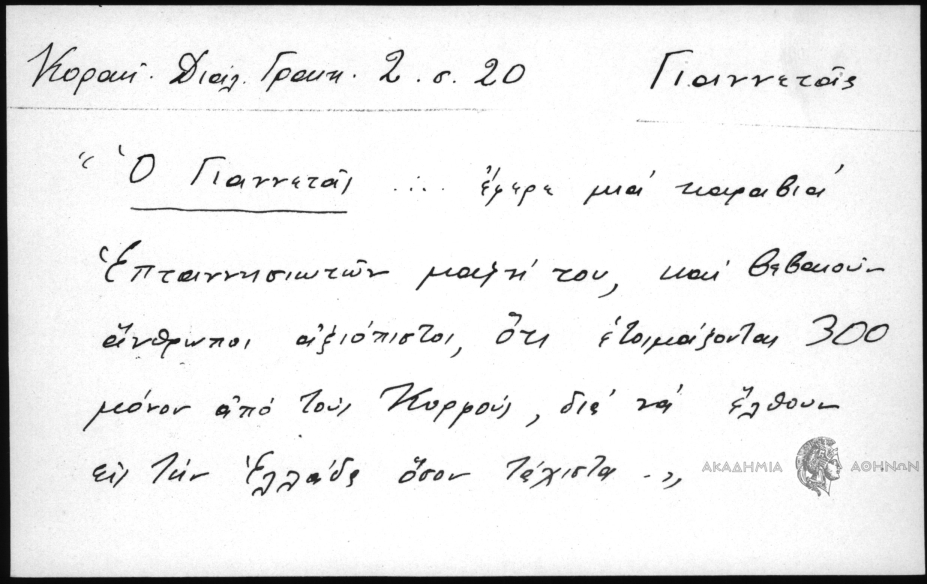 Κοραή. Διάλ. Γραικ. 2. σ. 20
Γιαννετᾶς
“ Ὁ Γιαννετᾶς .... ἔφερε μιά καραβιά
Ἑπταννησιωτῶν μαζή του, καί βεβαιοῦν
ἄνθρωποι ἀξιόπιστοι, ὅτι ἑτοιμάζονται 300
μόνον ἀπό τούς Κορφούς, διά νά ἔλθουν
εἰς τήν Ἑλλάδα ὅσον τάχιστα ..„
ΑΚΑΔΗΜΙΑ ΑΘΗΝΩΝ